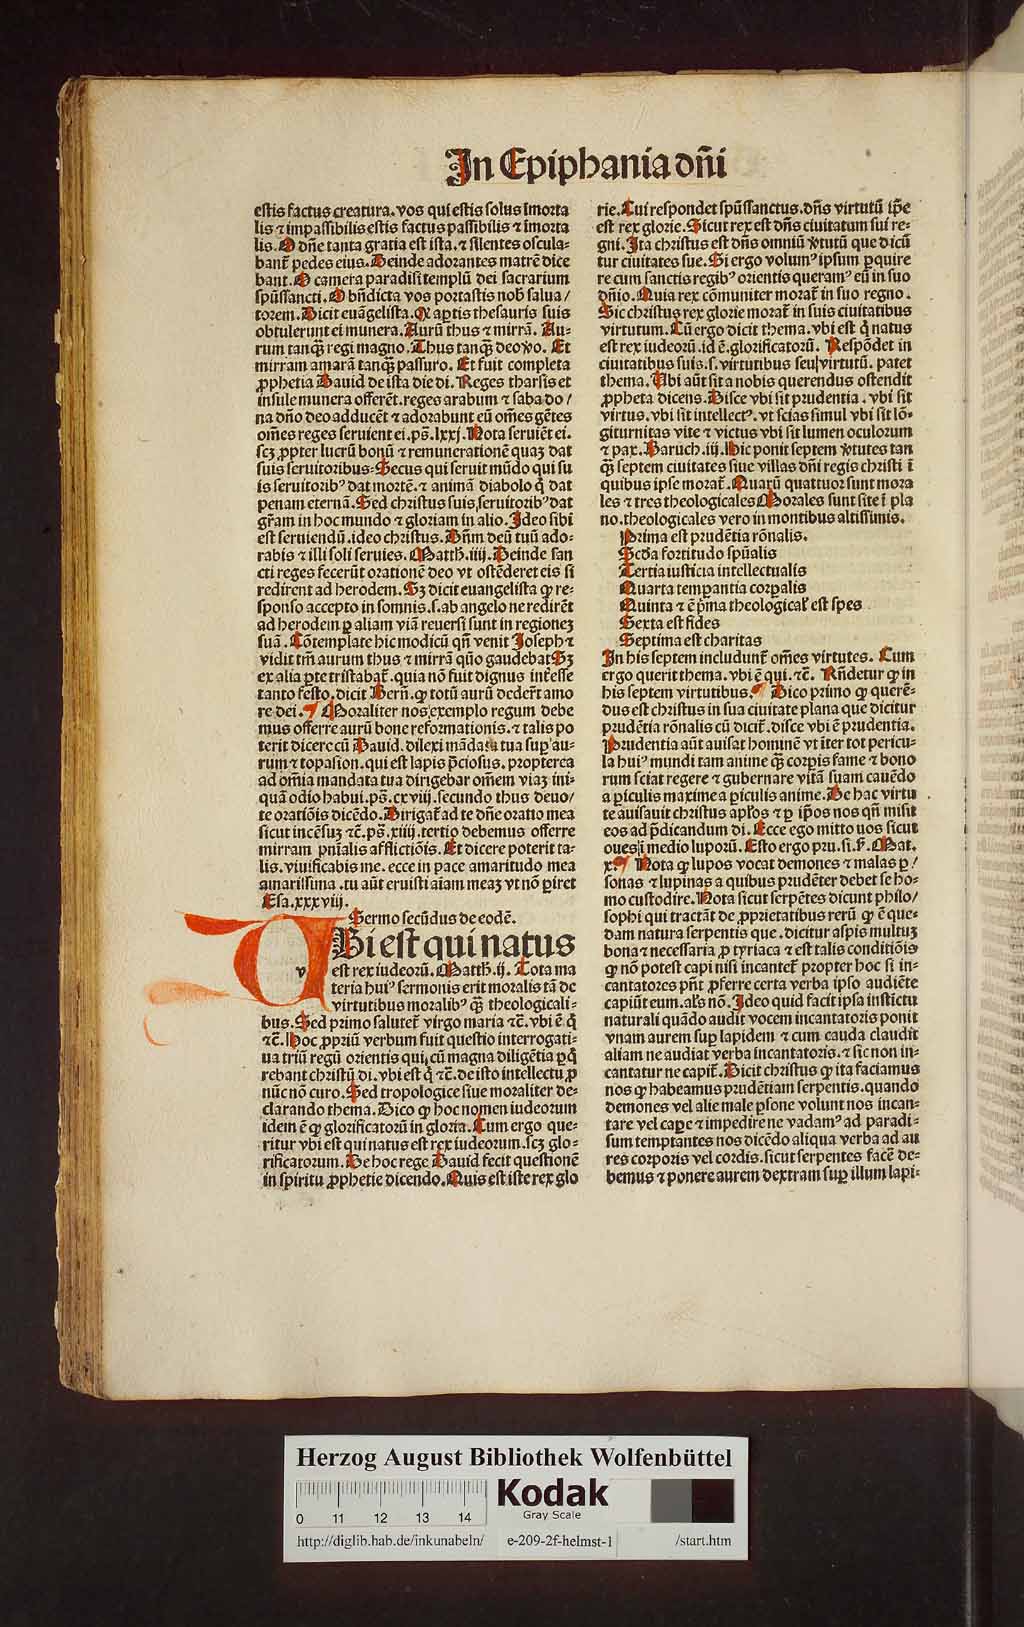 In Epiphania dn̄i
estis factus creatura. vos qui estis solus im̄orta
lis ⁊ impassibilis estis factus passibilis ⁊ im̄orta
lis. O dn̄e tanta gratia est ista. ⁊ silentes oscula-
bant̄ pedes eius. Deinde adorantes matrē dice
bant. O camera paradisi templū dei sacrarium
spūssancti. O bn̄dicta vos portastis nob̄ salua/
torem. Dicit euāgelista. Q aꝑtis thesauris suis
obtulerunt ei munera. Aurū thus ⁊ mirrā. Au-
rum tanqꝫ regi magno. Thus tanqꝫ deo vo. Et
mirram amarā tanqꝫ passuro. Et fuit completa
ꝓphetia Dauid de ista die di. Reges tharsis et
insule munera offerēt. reges arabum ⁊ saba do/
na dn̄o deo adducēt ⁊ adorabunt eū om̄es gētes
om̄es reges seruient ei. ps̄. lxxj. Nota seruiēt ei.
scꝫ ꝓpter lucrū bonū ⁊ remunerationē quaꝫ dat
suis seruitoribus. Secus qui seruit mūdo qui su
is seruitoribꝰ dat mortē. ⁊ animā diabolo q̄ dat
penam eternā. Sed christus suis seruitoribꝰ dat
gr̄am in hoc mundo ⁊ gloriam in alio. Ideo sibi
est seruiendū. ideo christus. Dn̄m deū tuū ado-
rabis ⁊ illi soli seruies. Matth. iiij. Deinde san
cti reges fecerūt orationē deo vt ostēderet eis si
redirent ad herodem. Sꝫ dicit euangelista ꝙ re-
sponso accepto in somnis. s. ab angelo ne redirēt
ad herodem ꝑ aliam viā reuersi sunt in regioneꝫ
suā. Cōtemplate hic modicū qn̄ venit Joseph ⁊
vidit tm̄ aurum thus ⁊ mirrā quō gaudebat Sꝫ
ex alia ꝑte tristabat̄. quia nō fuit dignus inter̄esse
tanto festo. dicit Bern̄. ꝙ totū aurū deder̄t amo
re dei. ¶ Moraliter nos exemplo regum debe
mus offerre aurū bone reformationis. ⁊ talis po
terit dicere cū Dauid. dilexi mādata tua supꝰ au-
rum ⁊ topasion. qui est lapis p̄ciosus. propterea
ad om̄ia mandata tua dirigebar om̄em viaꝫ ini-
quā odio habui. ps̄. cxviij. secundo thus deuo/
te oratiōis dicēdo. Dirigat̄ ad te dn̄e oratio mea
sicut incēsuꝫ ⁊c̄. ps̄. xiiij. tertio debemus offerre
mirram pn̄ialis afflictiōis. Et dicere poterit ta-
lis. viuificabis me. ecce in pace amaritudo mea
amarissima. tu aūt eruisti aīam meaꝫ vt nō ꝑiret
Esa. xxxviij.
Sermo secūdus de eodē.
UBi est qui natus
est rex iudeorū. Matth. ij. Tota ma
teria huiꝰ sermonis erit moralis tā de
virtutibus moralibꝰ qꝫ theologicali-
bus. Sed primo salutet̄ virgo maria ⁊c̄. vbi ē q̄
⁊c̄. Hoc ꝓpriū verbum fuit questio interrogati-
ua triū regū orientis qui cū magna diligētia ꝑq̄
rebant christū di. vbi est q̄ ⁊c̄. de isto intellectu ꝓ
nūc nō curo. Sed tropologice siue moraliter de-
clarando thema. Dico ꝙ hoc nomen iudeorum
idem ē ꝙ glorificatorū in gloria. Cum ergo que-
ritur vbi est qui natus est rex iudeorum. scꝫ glo-
rificatorum. De hoc rege Dauid fecit questionē
in spiritu ꝓphetie dicendo. Quis est iste rex glo
rie. Cui respondet spūssanctus. dn̄s virtutū ip̄e
est rex glorie. Sicut rex est dn̄s ciuitatum sui re-
gni. Ita christus est dn̄s omniū v̄tutū que dicū
tur ciuitates sue. Si ergo volumꝰ ipsum ꝑquire
re cum sanctis regibꝰ orientis queramꝰ eū in suo
dn̄io. Quia rex cōmuniter morat̄ in suo regno.
Sic christus rex glorie morat̄ in suis ciuitatibus
virtutum. Cū ergo dicit thema. vbi est q̄ natus
est rex iudeorū. id ē. glorificatorū. Respōdet in
ciuitatibus suis. s. virtutibus seu virtutū. patet
thema. Ubi aūt sit a nobis querendus ostendit
ꝓpheta dicens. Disce vbi sit prudentia. vbi sit
virtus. vbi sit intellectꝰ. vt scias simul vbi sit lō-
giturnitas vite ⁊ victus vbi sit lumen oculorum
⁊ pax. Baruch. iij. Hic ponit septem v̄tutes tan
qꝫ septem ciuitates siue villas dn̄i regis christi ī
quibus ipse morat̄. Quarū quattuor sunt mora
les ⁊ tres theologicales Morales sunt site ī pla
no. theologicales vero in montibus altissimis.
Prima est prudētia rōnalis.
Scd̄a fortitudo spūalis
Tertia iusticia intellectualis
Quarta temꝑantia corꝑalis
Quinta ⁊ ē p̄ma theological̄ est spes
Sexta est fides
Septima est charitas
In his septem includunt̄ om̄es virtutes. Cum
ergo querit thema. vbi ē qui. ⁊c̄. Rn̄detur ꝙ in
his septem virtutibus. ¶ Dico primo ꝙ querē-
dus est christus in sua ciuitate plana que dicitur
prudētia rōnalis cū dicit̄. disce vbi ē prudentia.
Prudentia aūt auisat hominē vt īter tot pericu-
la huiꝰ mundi tam anime qꝫ corꝑis fame ⁊ bono
rum sciat regere ⁊ gubernare vitā suam cauēdo
a ꝑiculis maxime a ꝑiculis anime. De hac virtu
te auisauit christus apl̄os ⁊ ꝑ ip̄os nos qn̄ misit
eos ad p̄dicandum di. Ecce ego mitto uos sicut
oues ī medio luporū. Esto ergo pru. si. s̄. Mat.
x. ¶ Nota ꝙ lupos vocat demones ⁊ malas ꝑ/
sonas ⁊ lupinas a quibus prudēter debet se ho-
mo custodire. Nota sicut serpētes dicunt philo/
sophi qui tractāt de ꝓprietatibus rerū ꝙ ē que-
dam natura serpentis que. dicitur aspis multuꝫ
bona ⁊ necessaria ꝓ tyriaca ⁊ est talis conditiōis
ꝙ nō potest capi nisi incantet̄ propter hoc si in-
cantatores pn̄t ꝓferre certa verba ipso audiēte
capiūt eum. al̄s nō. Ideo quid facit ipsa instictu
naturali quādo audit vocem incantatoris ponit
vnam aurem suꝑ lapidem ⁊ cum cauda claudit
aliam ne audiat verba incantatoris. ⁊ sic non in-
cantatur ne capit̄. Dicit christus ꝙ ita faciamus
nos ꝙ habeamus prudētiam serpentis. quando
demones vel alie male ꝑsone volunt nos incan-
tare vel caꝑe ⁊ impedire ne vadamꝰ ad paradi-
sum temptantes nos dicēdo aliqua verba ad au
res corporis vel cordis. sicut serpentes facē de-
bemus ⁊ ponere aurem dextram suꝑ illum lapi-
v
Herzog August Bibliothek Wolfenbüttel
0 11 12 13 14
Kodak
Gray Scale
http://diglib.hab.de/inkunabeln/ e-209-2f-helmst-1 /start.htm